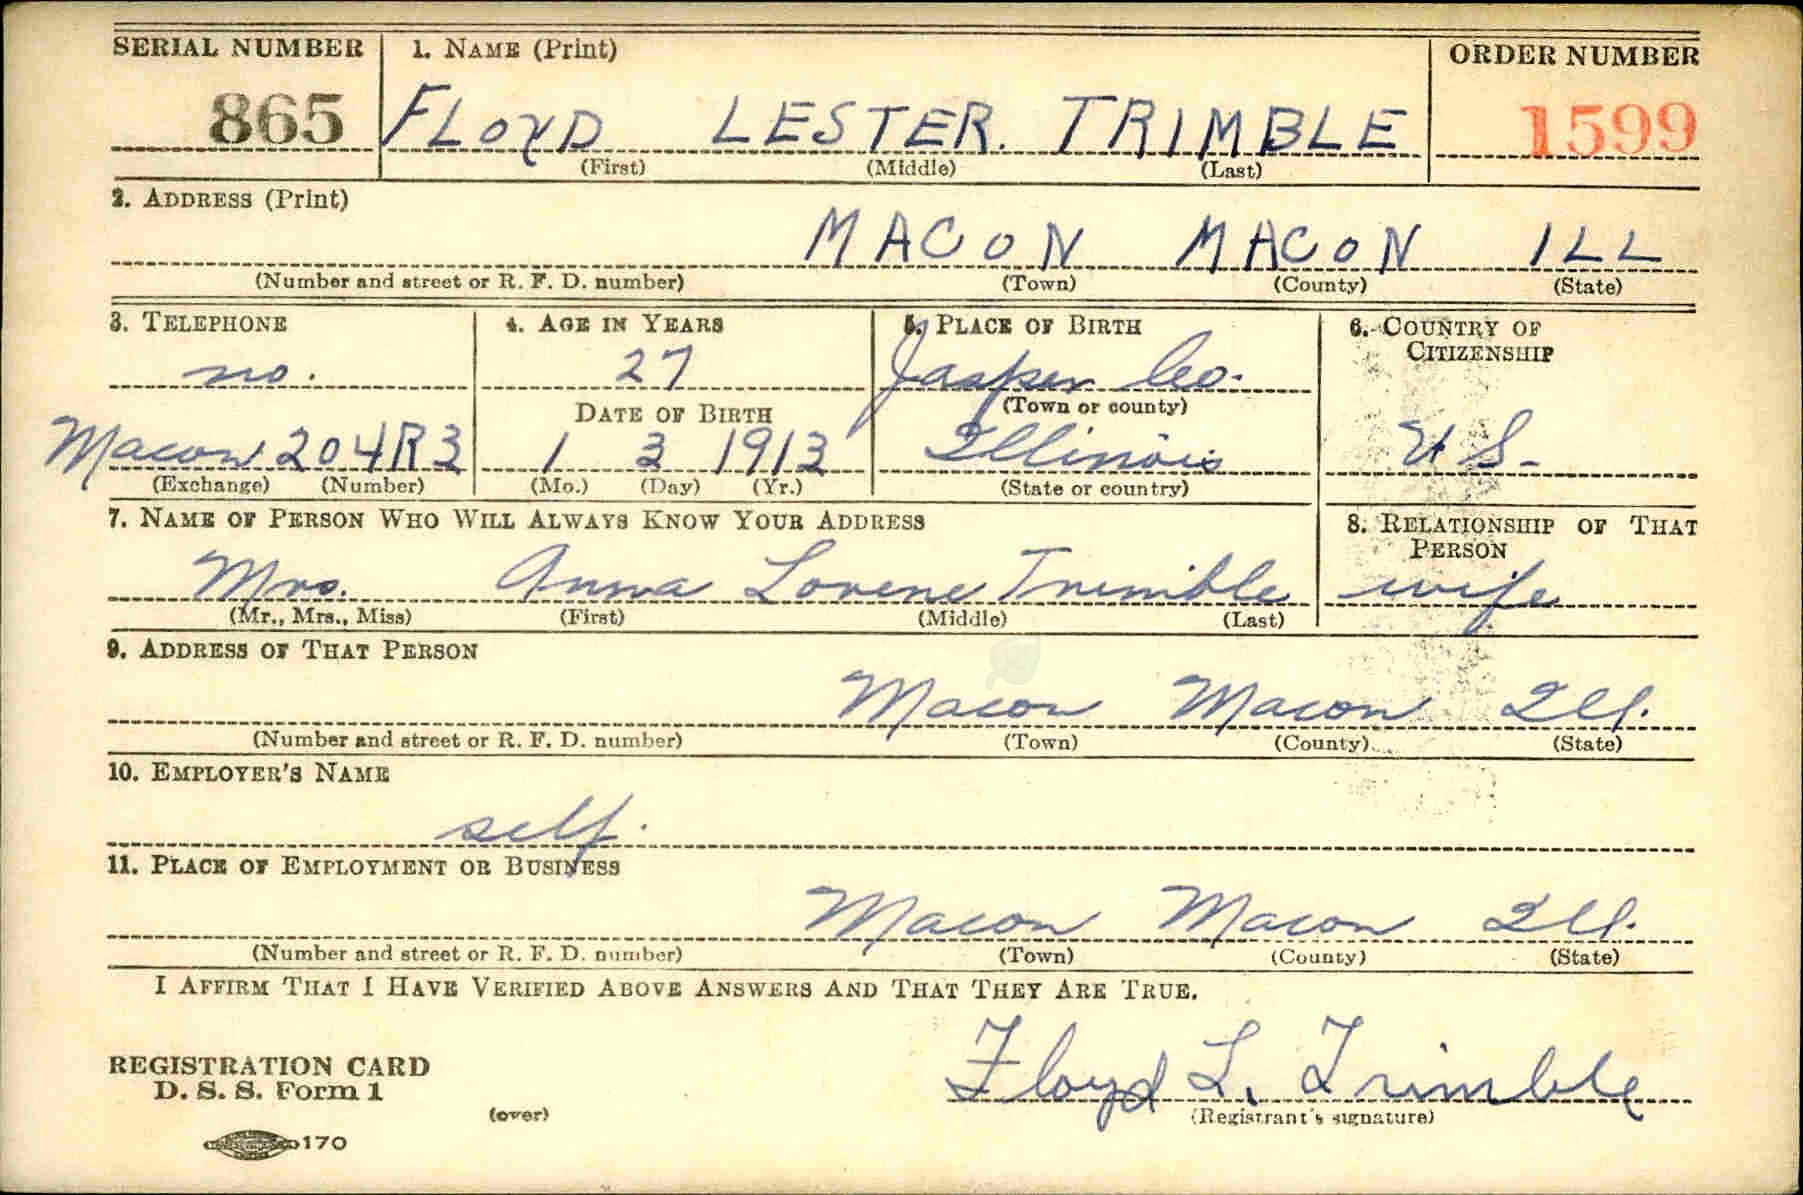 SERIAL NUMBER 1. NAME (Print) ORDER NUMBER
865 FLOYD LESTER. TRIMBLE 1599
(First) (Middle) (Last)
2. ADDRESS (Print)
MACON MACON ILL
(Number and street or R. F. D. number) (Town) (County) (State)
3. TELEPHONE 4. AGE IN YEARS 5. PLACE OF BIRTH 6. COUNTRY OF
CITIZENSHIP
no. 27 Jasper Co.
(Town or county)
DATE OF BIRTH
Macon 204R3 1 3 1913 Illinois U S.
(Exchange) (Number) (Mo.) (Day) (Yr.) (State or country)
7. NAME OF PERSON WHO WILL ALWAYS KNOW YOUR ADDRESS 8. RELATIONSHIP OF THAT
PERSON
Mrs. Anna Lorene Trimble wife
(Mr., Mrs., Miss) (First) (Middle) (Last)
9. ADDRESS OF THAT PERSON
Macon Macon Ill.
(Number and street or R. F. D. number) (Town) (County) (State)
10. EMPLOYER'S NAME
self.
11. PLACE OF EMPLOYMENT OR BUSINESS
Macon Macon Ill.
(Number and street or R. F. D. number) (Town) (County) (State)
I AFFIRM THAT I HAVE VERIFIED ABOVE ANSWERS AND THAT THEY ARE TRUE.
Floyd L. Trimble
REGISTRATION CARD
D. S. S. Form 1
(over) (Registrant's signature)
170